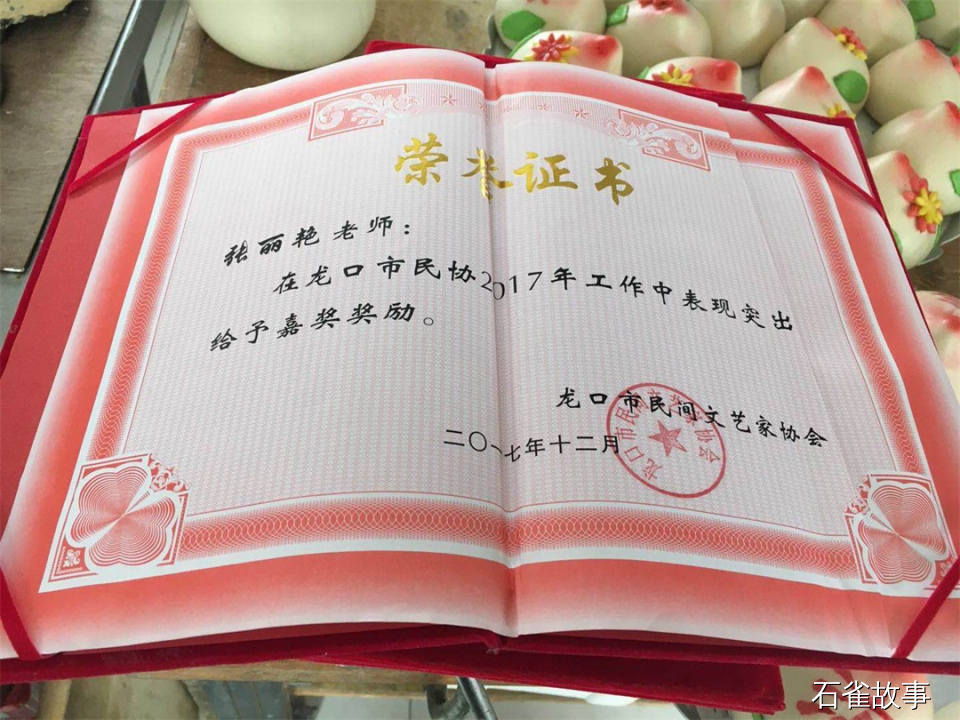 荣誉证书
张丽艳老师：
在龙口市民协2017年工作中表现突出
给予嘉奖奖励。
龙口市民间文艺家协会
二〇一七年十二月
龙口市民间文艺家协会
石雀故事